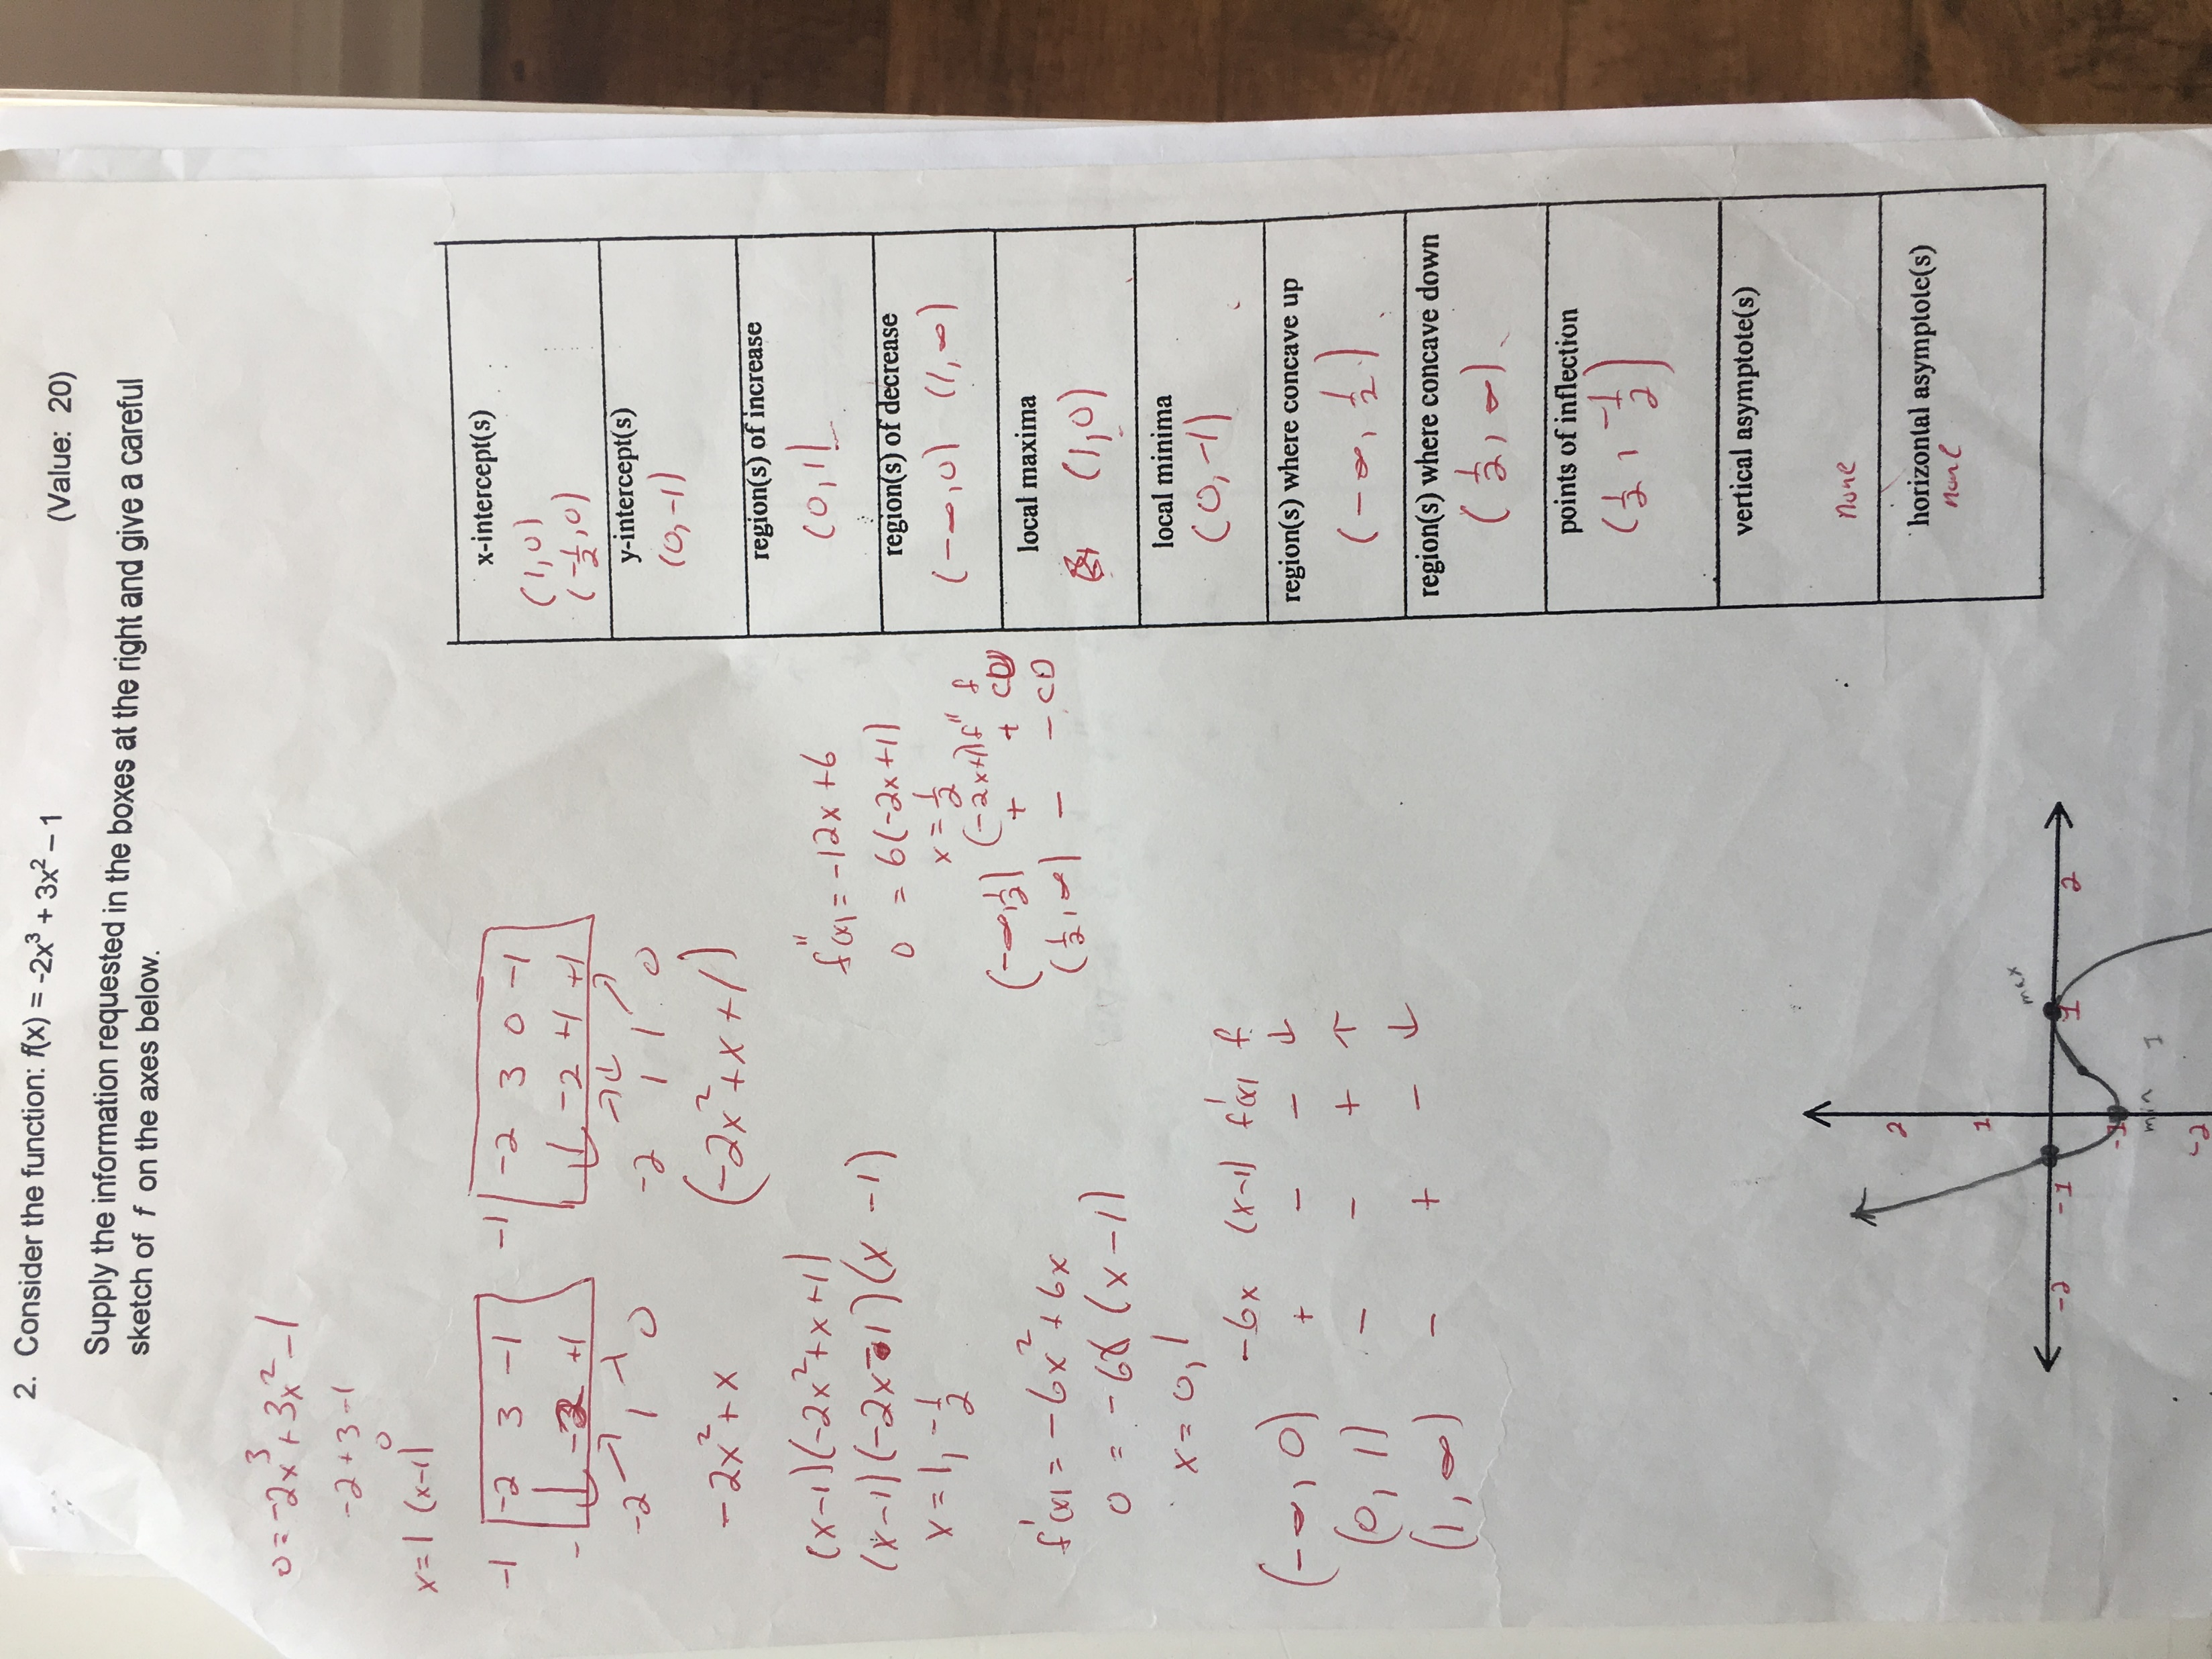 2. Consider the function: f(x) = -2x³ + 3x² – 1 (Value: 20)
Supply the information requested in the boxes at the right and give a careful
sketch of f on the axes below.
0 = -2x³ + 3x² - 1
-2 + 3 - 1
0
x = 1 (x-1)
-1 | -2 3 -1
-2 +1
-2 1 0
-2x² + x
-1 | -2 3 0 -1
-2 +1 +1
-2 1 1 0
(-2x² + x + 1)
(x-1)(-2x² + x + 1)
(x-1)(-2x-1)(x-1)
x = 1, -1/2
f'(x) = -6x² + 6x
0 = -6x(x-1)
x = 0, 1
-6x (x-1) f'(x) f
(-∞, 0) + - - ↓
(0, 1) - - + ↑
(1, ∞) - + - ↓
f''(x) = -12x + 6
0 = 6(-2x+1)
x = 1/2
(-2x+1) f'' f
(-∞, 1/2) + +
(1/2, ∞) - - CD
x-intercept(s)
(1, 0)
(-1/2, 0)
y-intercept(s)
(0, -1)
region(s) of increase
(0, 1)
region(s) of decrease
(-∞, 0) (1, ∞)
local maxima
(1, 0)
local minima
(0, -1)
region(s) where concave up
(-∞, 1/2)
region(s) where concave down
(1/2, ∞)
points of inflection
(1/2, -1/2)
vertical asymptote(s)
none
horizontal asymptote(s)
none
2
1
max
-2 -1 1 2
-1
min 1
-2